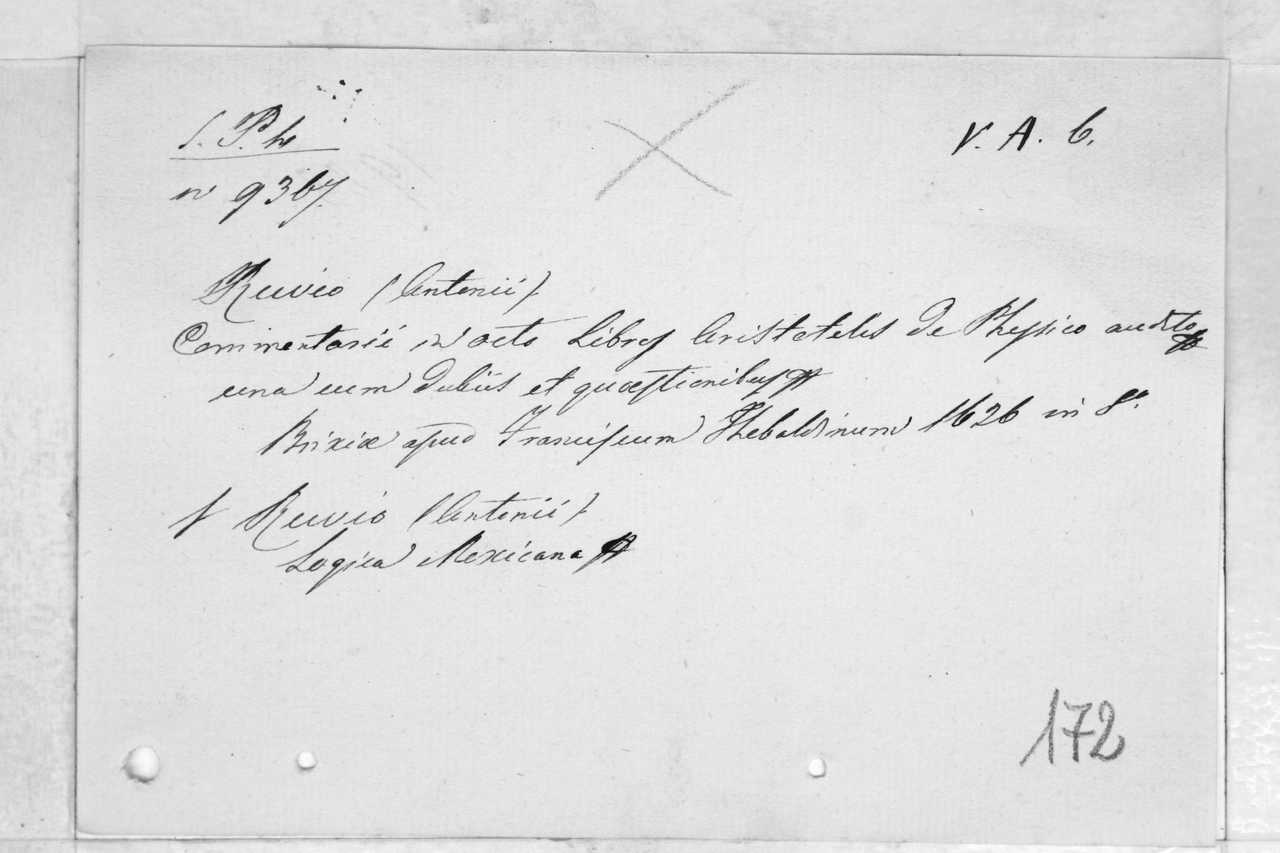 S. Ph
n 9367.
V. A. 6.
Ruvio (Antonii)
Commentarii in octo Libros Aristotelis De Physico audito
una cum dubiis et quæstionibus
Brixiæ apud Franciscum Thebaldinum 1626 in 8°
Ruvio (Antonii)
Logica Mexicana
172